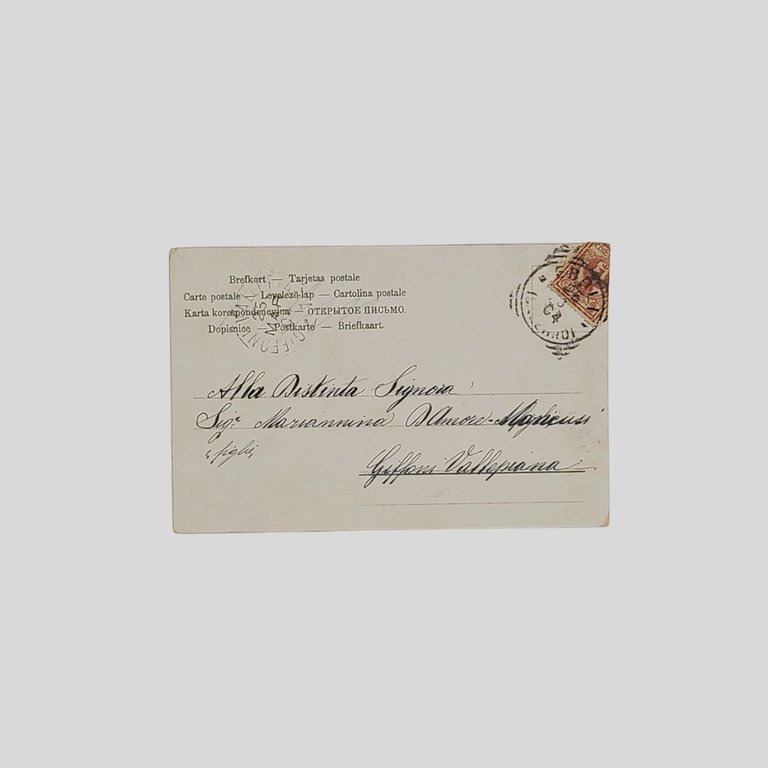 Brefkort — Tarjetas postale
Carte postale — Levelező-lap — Cartolina postale
Karta korespondencyjna — ОТКРЫТОЕ ПИСЬМО.
Dopisnice — Postkarte — Briefkaart.
Alla Distinta Signora
Sig.ª Mariannina D'Amore
e figli
Giffoni Vallepiana